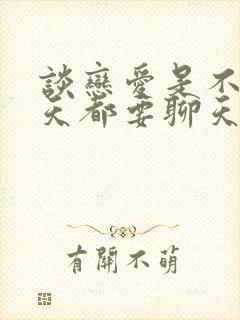 談戀愛是不
天都要聊天
有關不萌